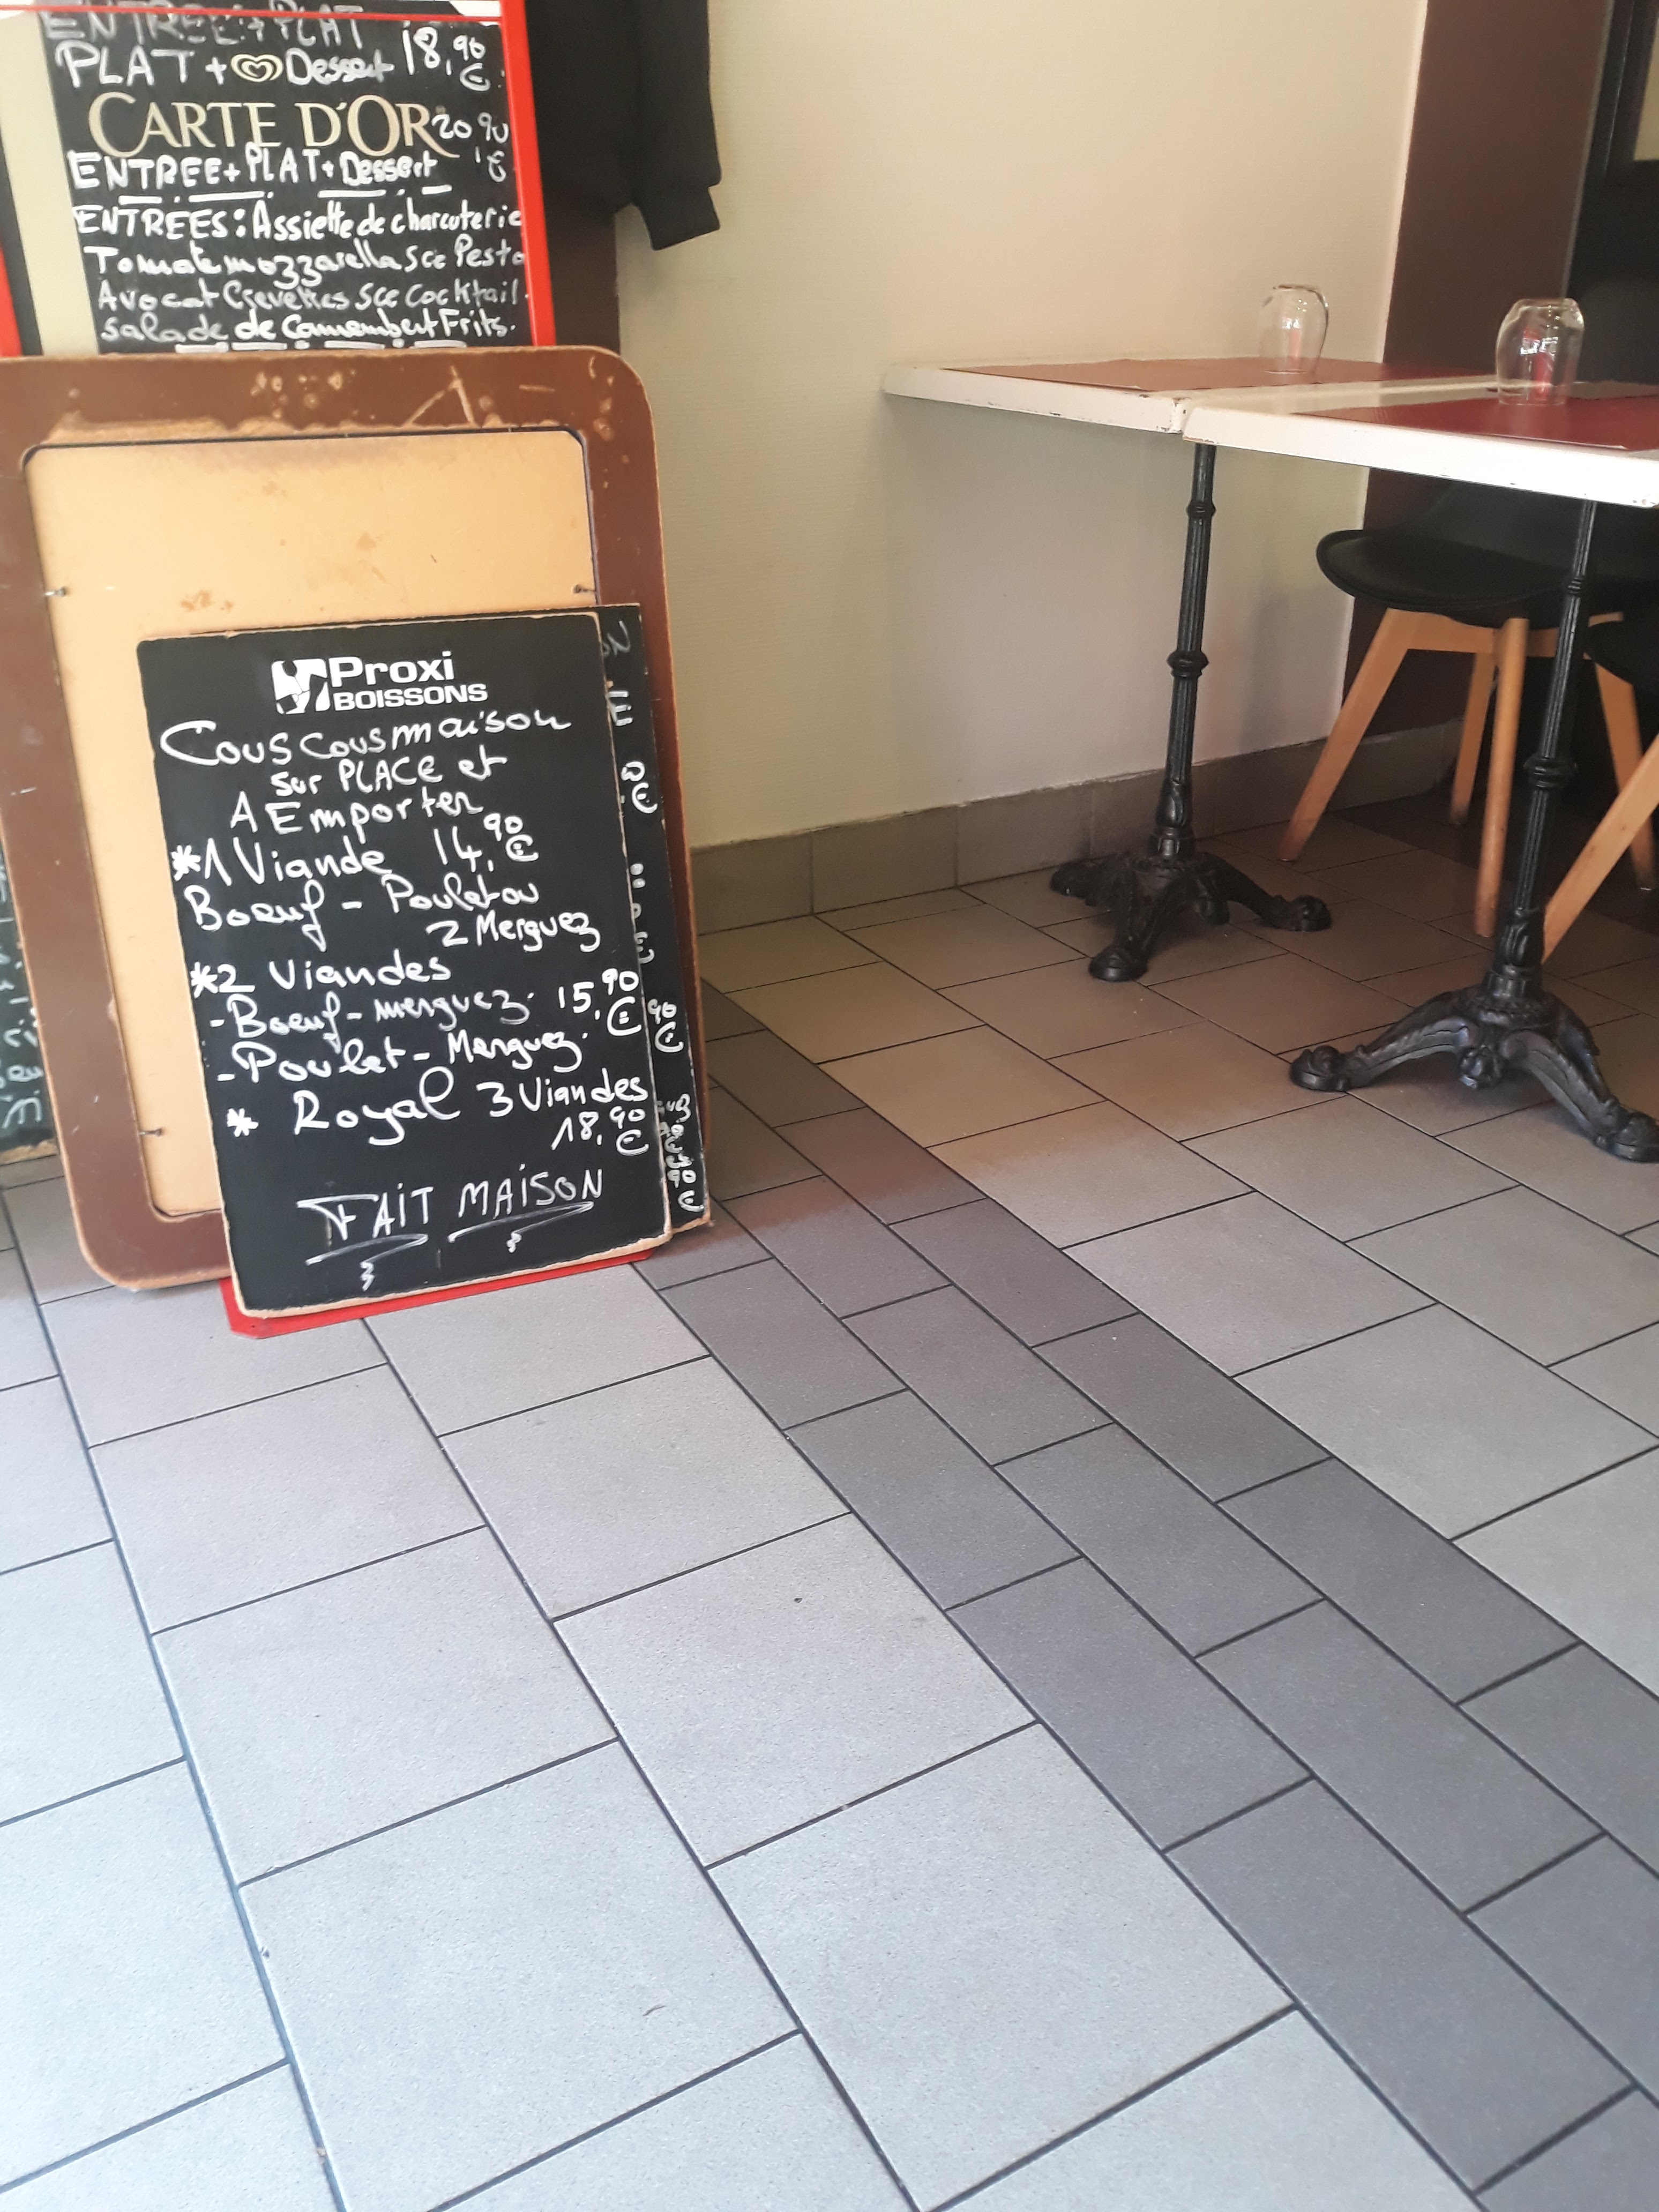 ENTREE + PLAT
PLAT + Dessert 18,90 €
CARTE D'OR 20,90 €
ENTREE + PLAT + Dessert
ENTRÉES : Assiette de charcuterie
Tomate mozzarella sce Pesto
Avocat Crevettes sce Cocktail.
Salade de Camembert Frits.
Proxi
BOISSONS
Couscous maison
sur PLACE et
A Emporter
*1 Viande 14,90 €
Boeuf - Poulet ou
2 Merguez
*2 Viandes
- Boeuf - merguez. 15,90 €
- Poulet - Merguez.
* Royal 3 Viandes
18,90 €
FAIT MAISON